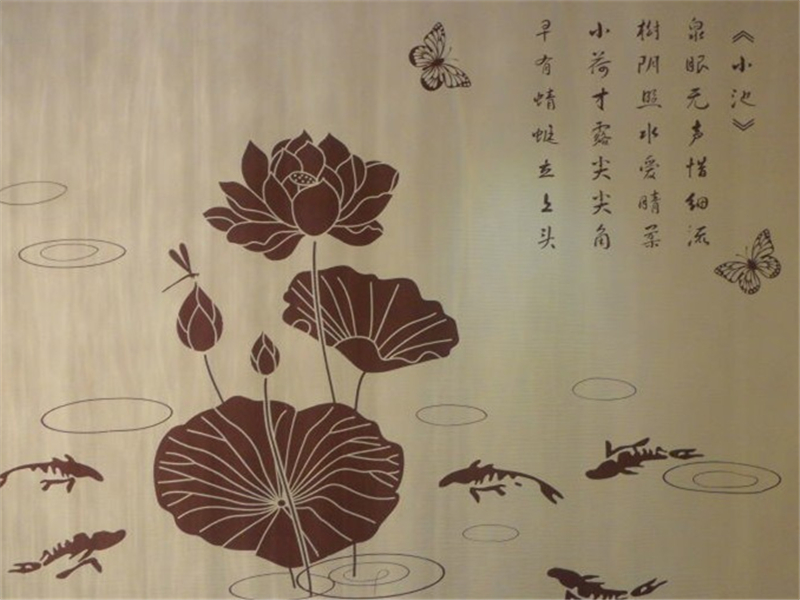 《小池》
泉眼无声惜细流
树阴照水爱晴柔
小荷才露尖尖角
早有蜻蜓立上头